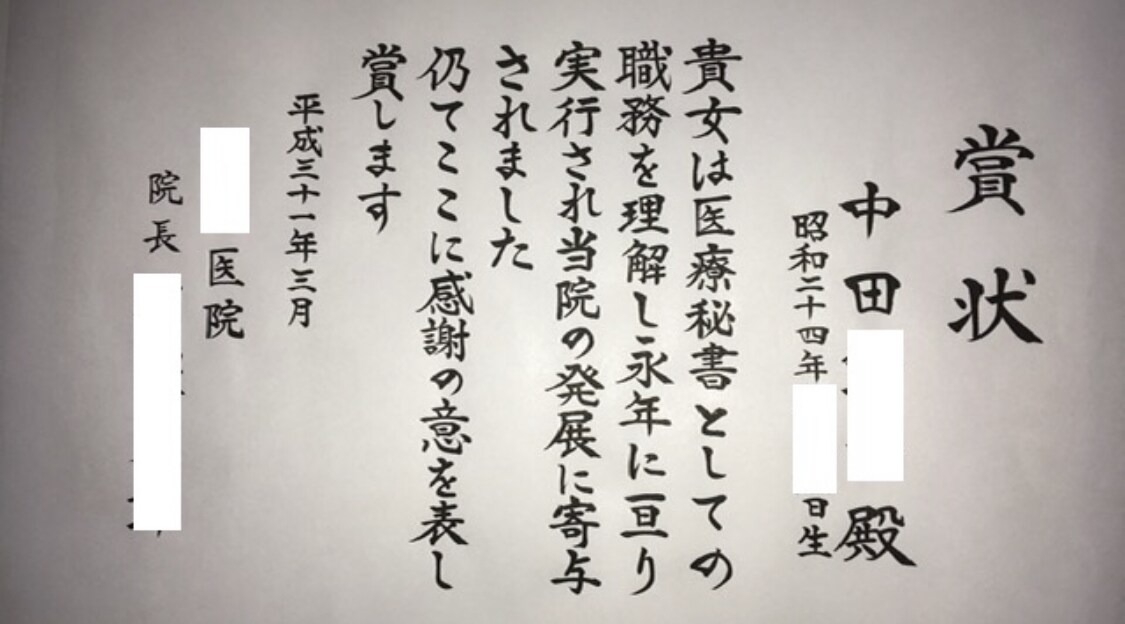 賞状
中田 殿
昭和二十四年 日生
貴女は医療秘書としての
職務を理解し永年に亘り
実行され当院の発展に寄与
されました
仍てここに感謝の意を表し
賞します
平成三十一年三月
医院
院長